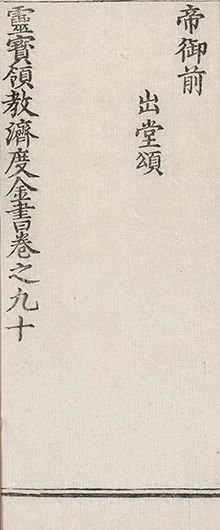 帝御前
出堂頌
靈寶領教濟度金書卷之九十